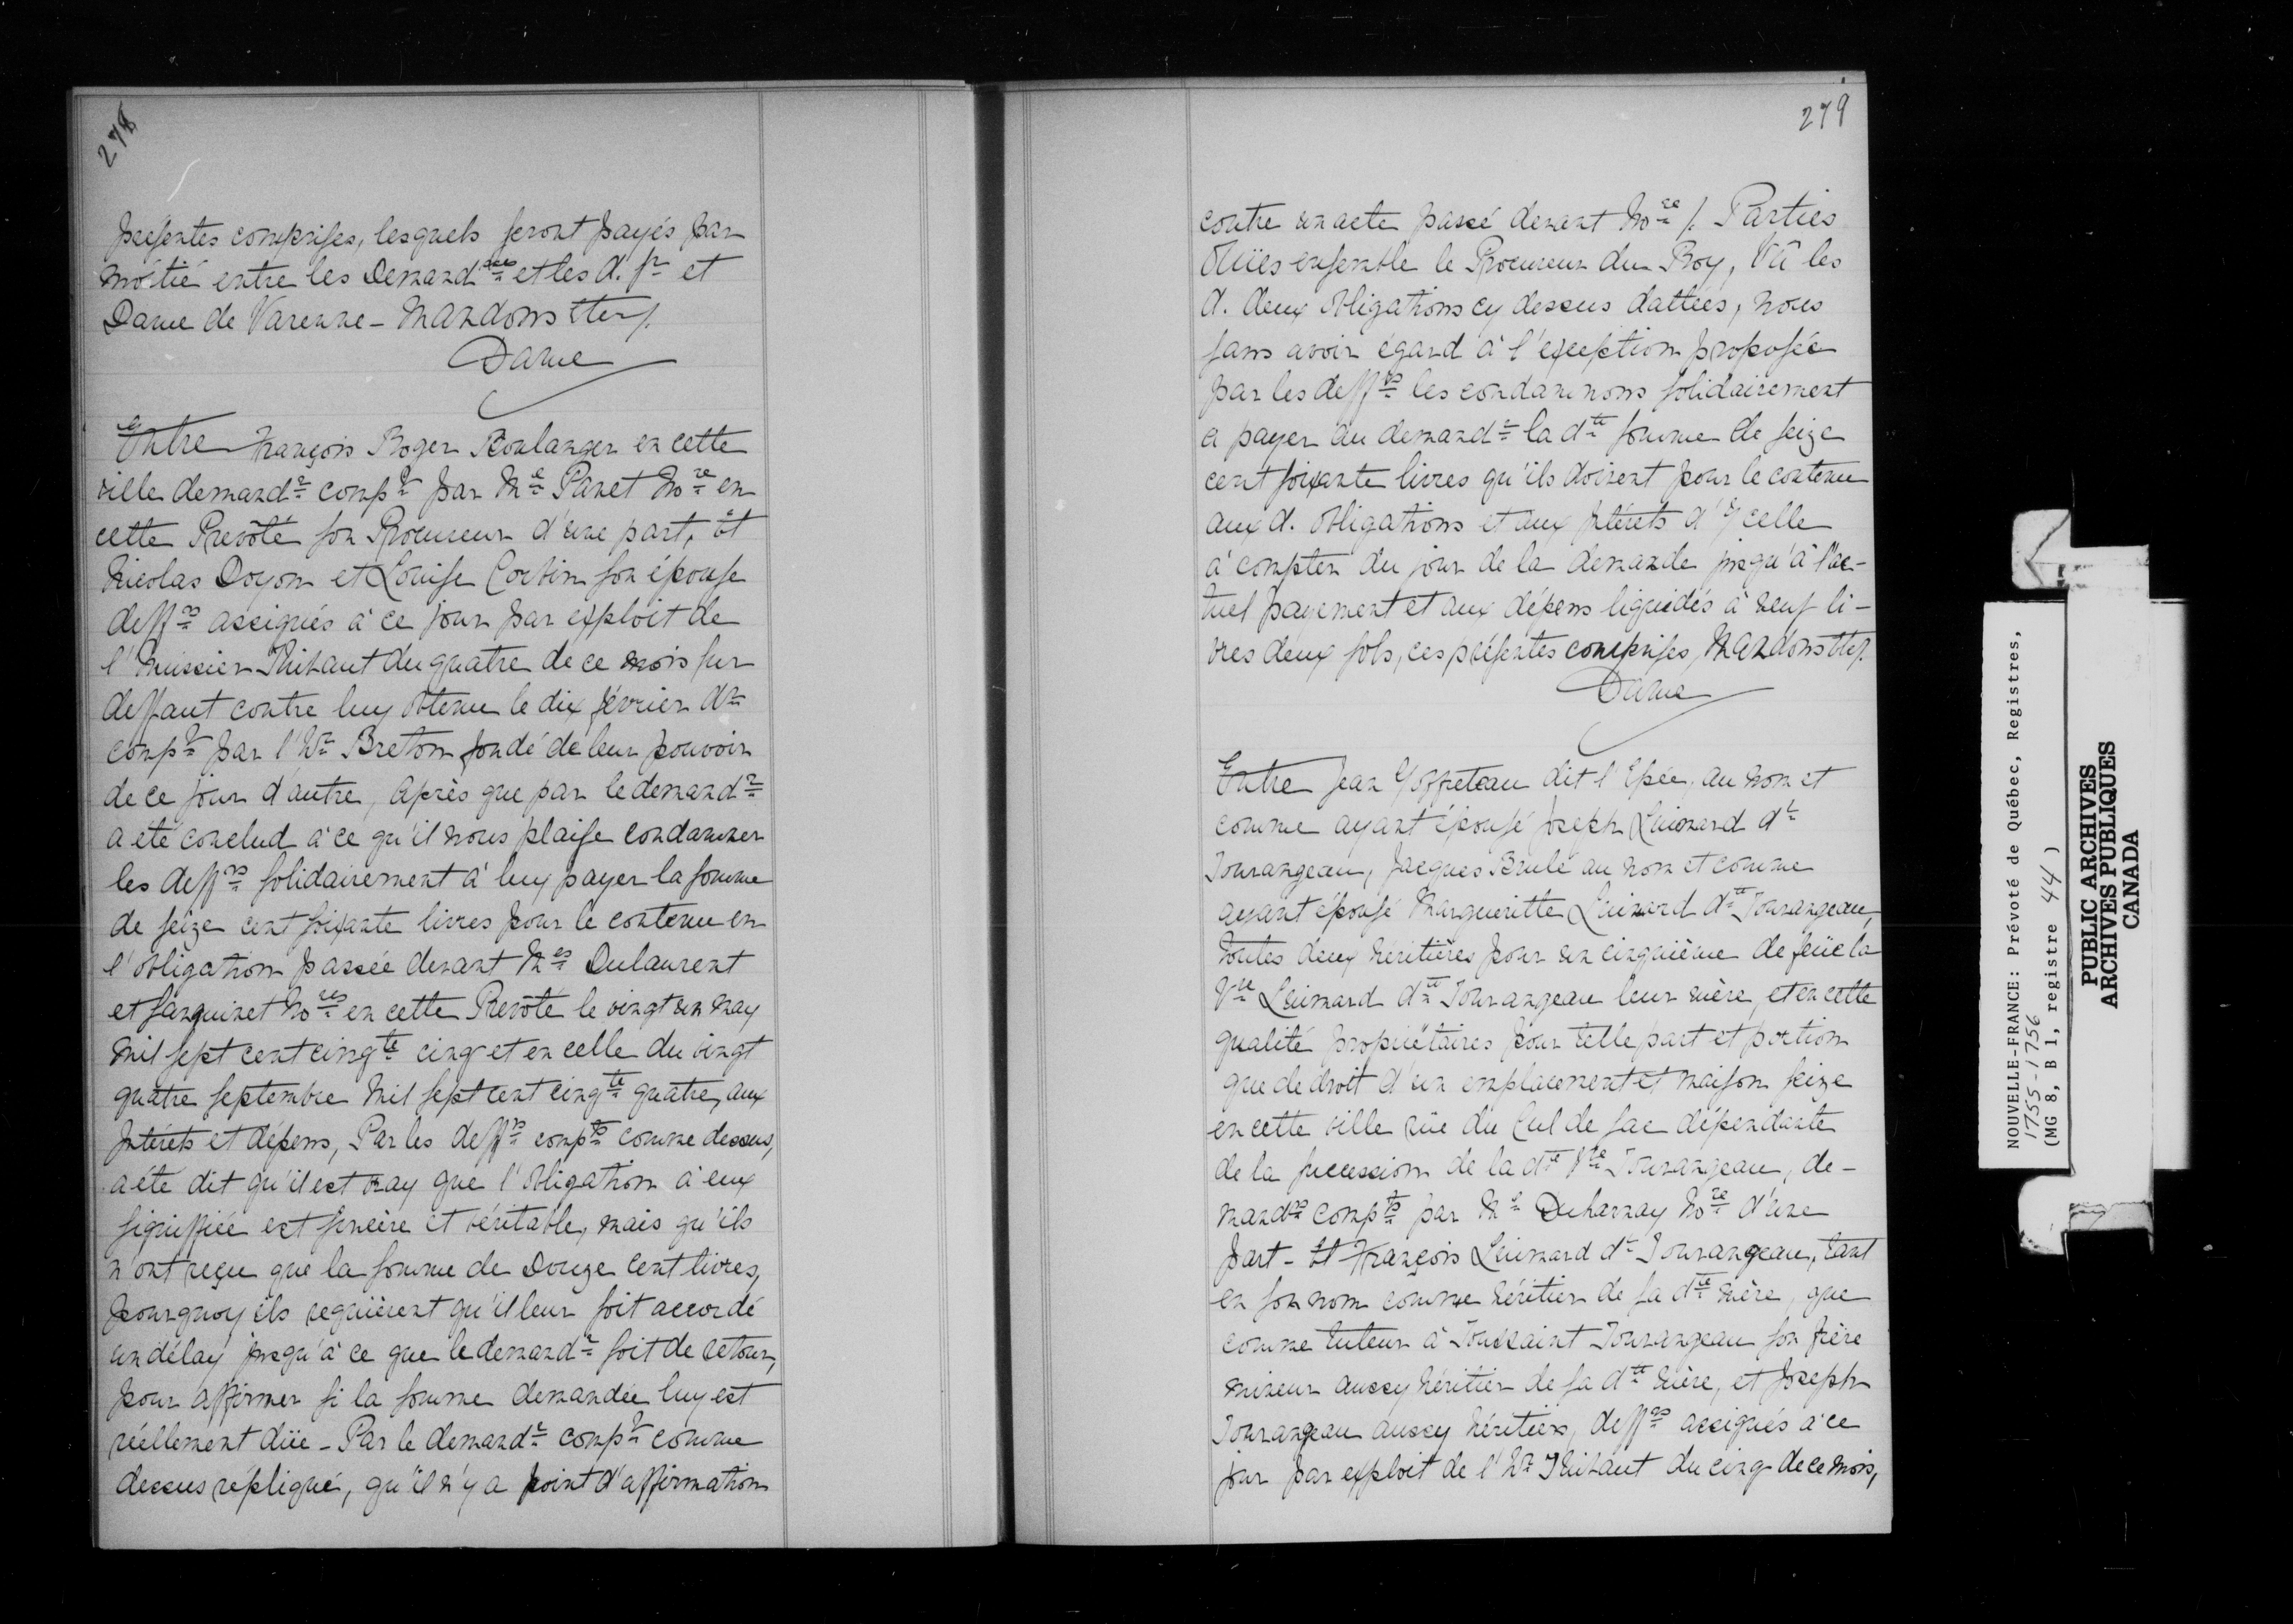 278
présentes comprises, lesquels seront payés par
moitié entre les Demand.res et les d. Sr et
Dame de Varenne - Mandons etc/.
Daine
Entre François Roger Boulanger en cette
ville demandr compt par Me Panet Nore en
cette Prevôté son Procureur d'une part, Et
Nicolas Doyon et Louise Corbin son épouse
deffrs assignés à ce jour par exploit de
l'huissier Thibaut du quatre de ce mois sur
deffaut contre luy obtenu le dix février dr
compt par l'hr Breton fondé de leur pouvoir
de ce jour d'autre, Après que par le demandr
a été conclud à ce qu'il nous plaise condamner
les deffrs solidairement à luy payer la somme
de seize cent soixante livres pour le contenu en
l'obligation passée devant Mes Dulaurent
et Sanguinet Nores en cette Prevôté le vingt un may
mil sept cent cinqte cinq et en celle du vingt
quatre septembre mil sept cent cinqte quatre, aux
Intérets et dépens, Par les deffrs compts comme dessus,
a été dit qu'il est vray que l'obligation à eux
signiffiée est sincère et véritable, mais qu'ils
n'ont reçu que la somme de Douze cent livres,
pourquoy ils requièrent qu'il leur soit accordé
un délay jusqu'à ce que le demandr soit de retour,
pour affirmer si la somme demandée luy est
réellement düe - Par le demandr compt comme
dessus répliqué, qu'il n'y a point d'affirmation
279
contre un acte passé devant Nore /. Parties
Ouïes ensemble le Procureur du Roy, Vû les
d. deux obligations cy dessus dattées, nous
sans avoir égard à l'exception proposée
par les deffrs les condamnons solidairement
a payer au demandr la dte somme de seize
cent soixante livres qu'ils doivent pour le contenu
aux d. obligations et aux Intérets d'Ycelle
à compter du jour de la demande jusqu'à l'ac-
tuel payement et aux dépens liquidés à neuf li-
vres deux sols, ces présentes comprises, Mandons etc/.
Daine
Entre Jean Joffreteau dit l'Epée, au nom et
comme ayant épousé Joseph Léimard dt
Tourangeau, Jacques Brulé au nom et comme
ayant épousé Margueritte Léimard dte Tourangeau,
toutes deux héritières pour un cinquième de feüe la
Vve Léimard dte Tourangeau leur mère, et en cette
qualité propriétaires pour telle part et portion
que de droit d'un emplacement et maison seize
en cette ville rüe du Cul de sac dépendante
de la succession de la dte Vve Tourangeau, de-
mandrs compts par Me Decharnay Nore d'une
part - Et François Léimard dt Tourangeau, tant
en son nom comme héritier de sa dte mère, que
comme tuteur à Toussaint Tourangeau son frère
mineur aussy héritier de sa dte mère, et Joseph
Tourangeau aussy héritiers, deffrs assignés à ce
jour par exploit de l'hr Thibaut du cinq de ce mois,
NOUVELLE-FRANCE: Prévoté de Québec, Registres,
1755-1756
(MG 8, B 1, registre 44)
PUBLIC ARCHIVES
ARCHIVES PUBLIQUES
CANADA